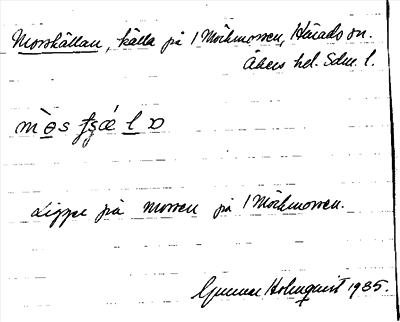 Mosskällan, källa på Mörkmossen, Härads sn.
Åkers hd. Sdm. l.
Ligger på mossen på Mörkmossen.
Gunnar Holmquist 1935.